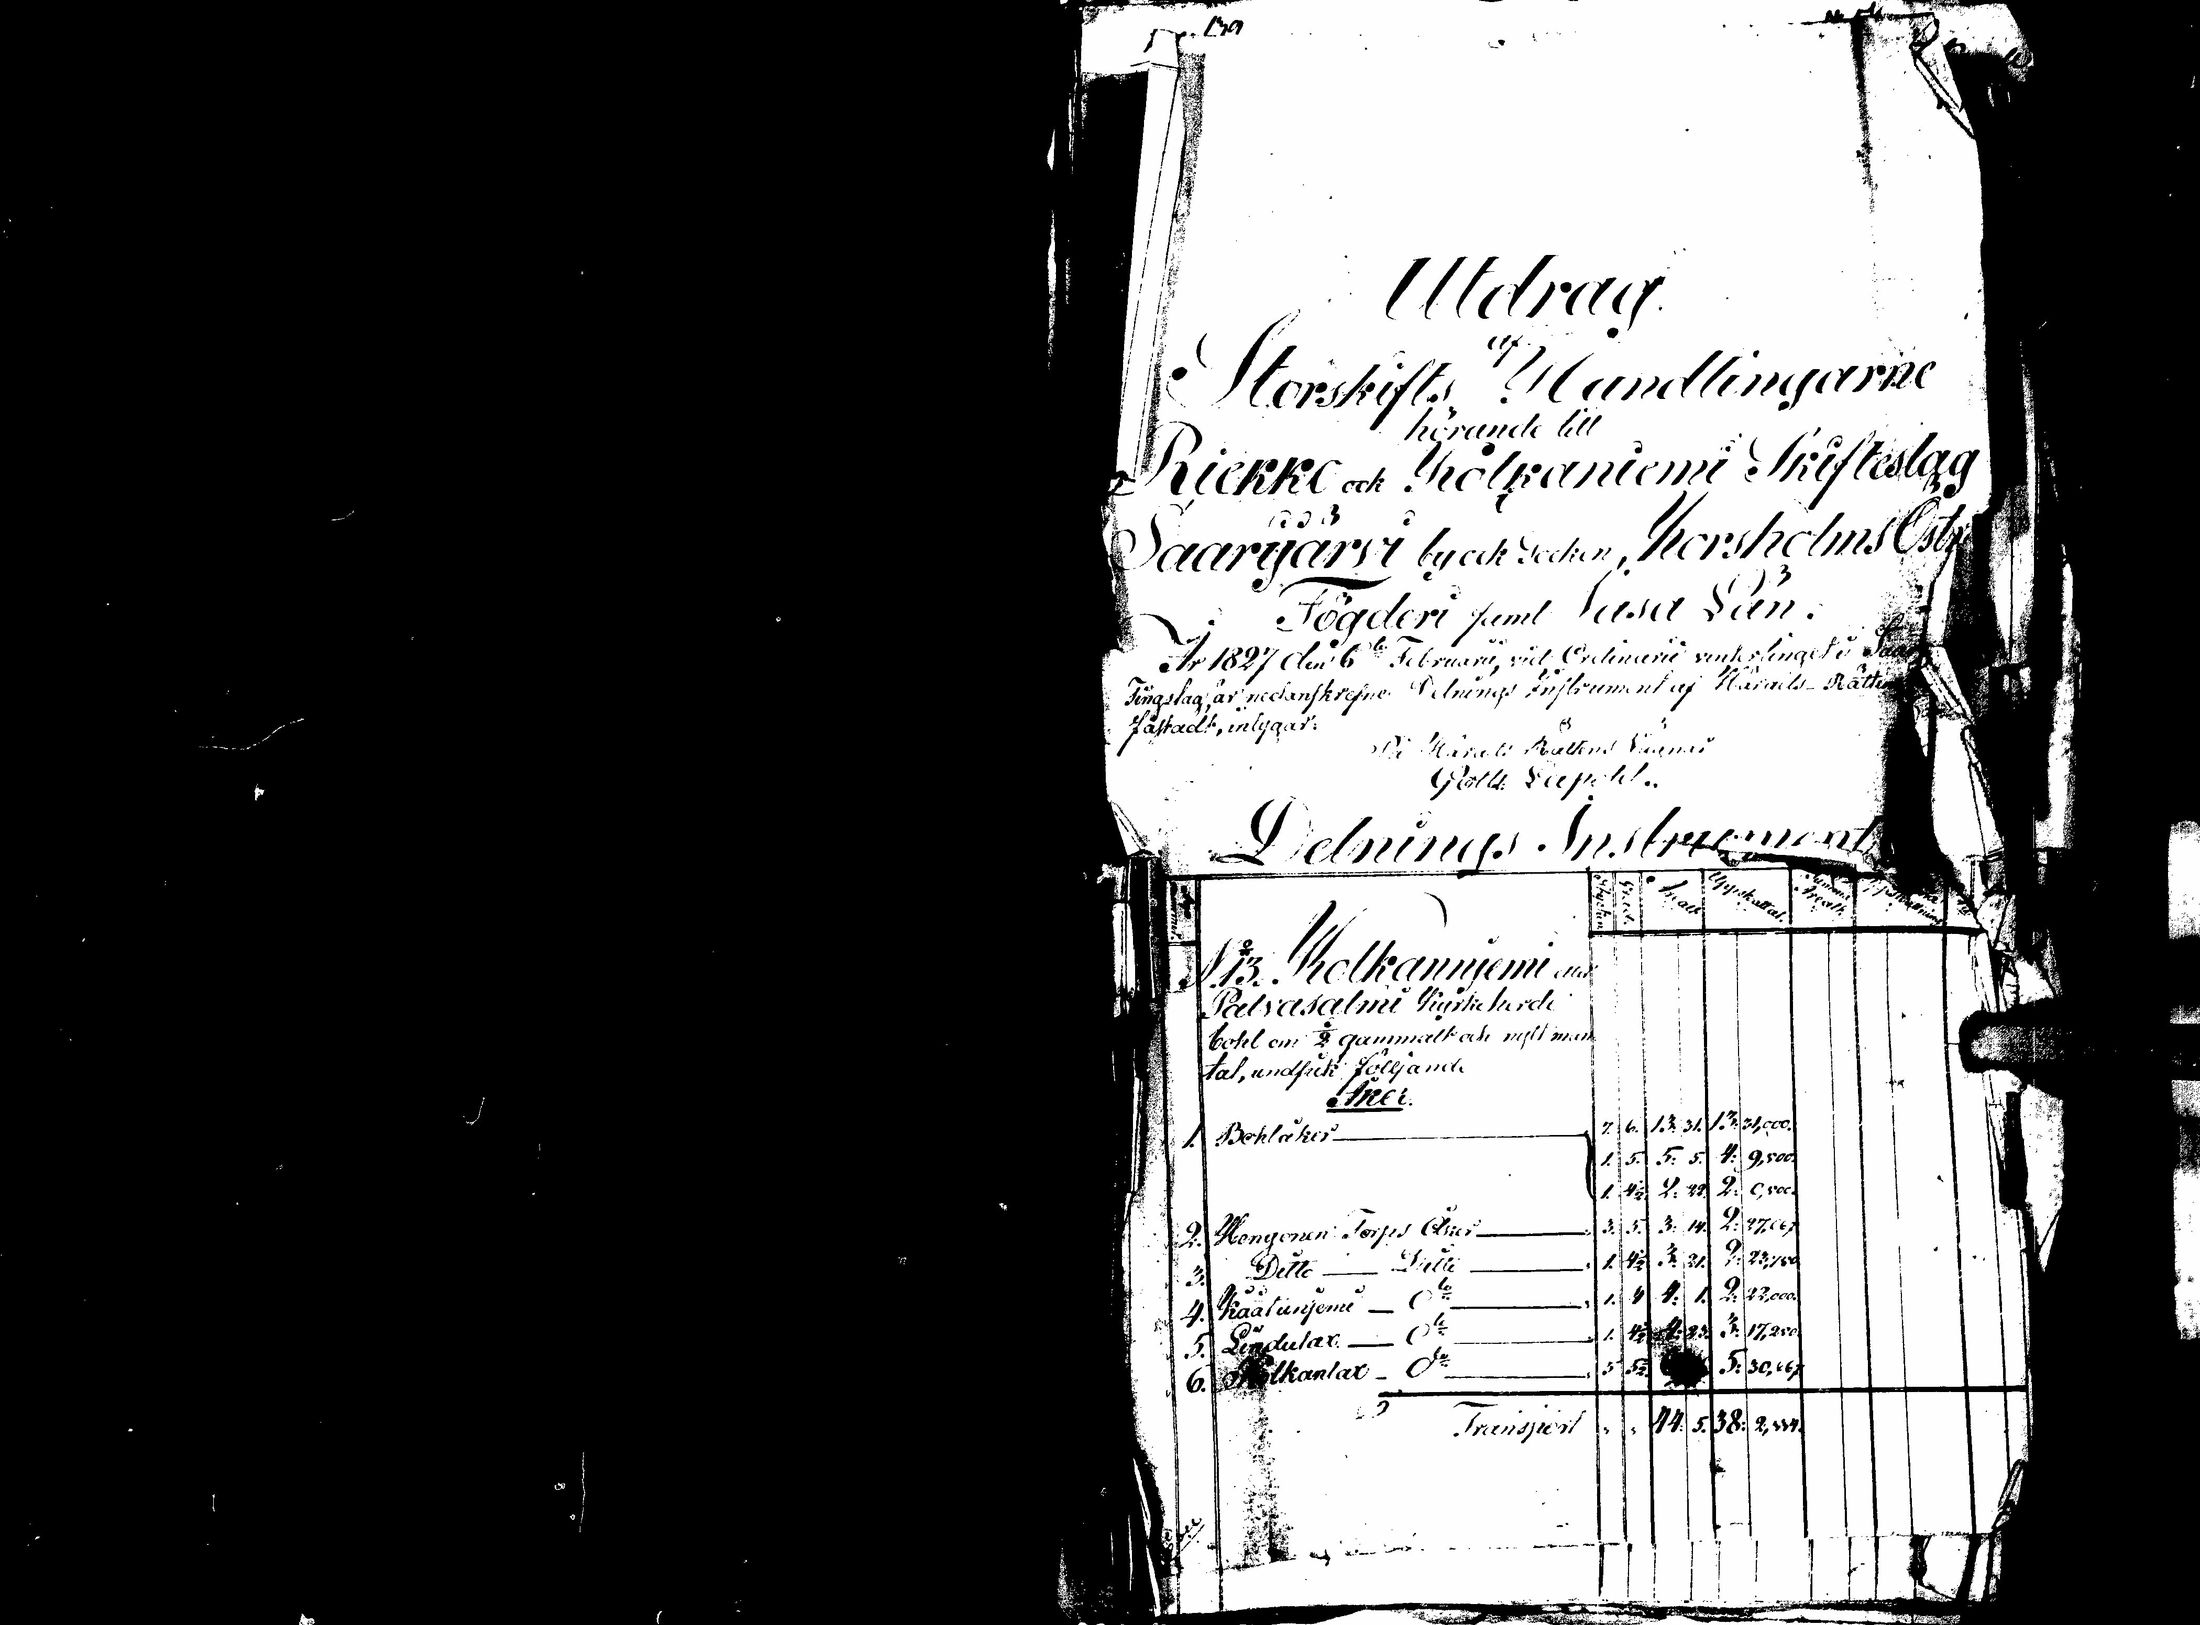 139
Utdrag
af
Storskifts Handlingarne
hörande till
Riekko och Kolkaniemi Skifteslag
Saarijärvi by och Socken, Korsholms Östr
Fögderi samt Vasa Län.
År 1827 den 6te Februarii, vid Ordinarie vintertinget i Saar
Tingslag, är nedanskrefne Delnings Instrument af Härads-Rätten
fästadt, intygar.
På Härads Rättens Vägnar
Delnings Instrument
Stycken Grad. Inalt Uppskattat. Summa Inalt
N:o 13. Kolkanniemi eller
Palvasalmi Kyrkoherde
bohl om 1/2 gammalt och nytt man
tal, undfick följande
Åker.
1. Bohlåker 7. 6. 13: 31. 13: 31,000.
1. 5. 5: 5. 4: 9,500.
1. 4½. 2: 22. 2: 0,500.
2. Hongonen Torps Åker 3. 5. 3: 14. 2: 27,067
3. Ditto Ditto 1. 4½. 3: 21. 2: 23,750
4. Käätänjemi d:o 1. 4 4: 1. 2: 22,000.
5. Lindulax d:o 1. 4½ 4: 23. 3: 17,250
6. Kolkanlax d:o 5 5½. 5: 30,667
Transport 44: 5. 38: 2,